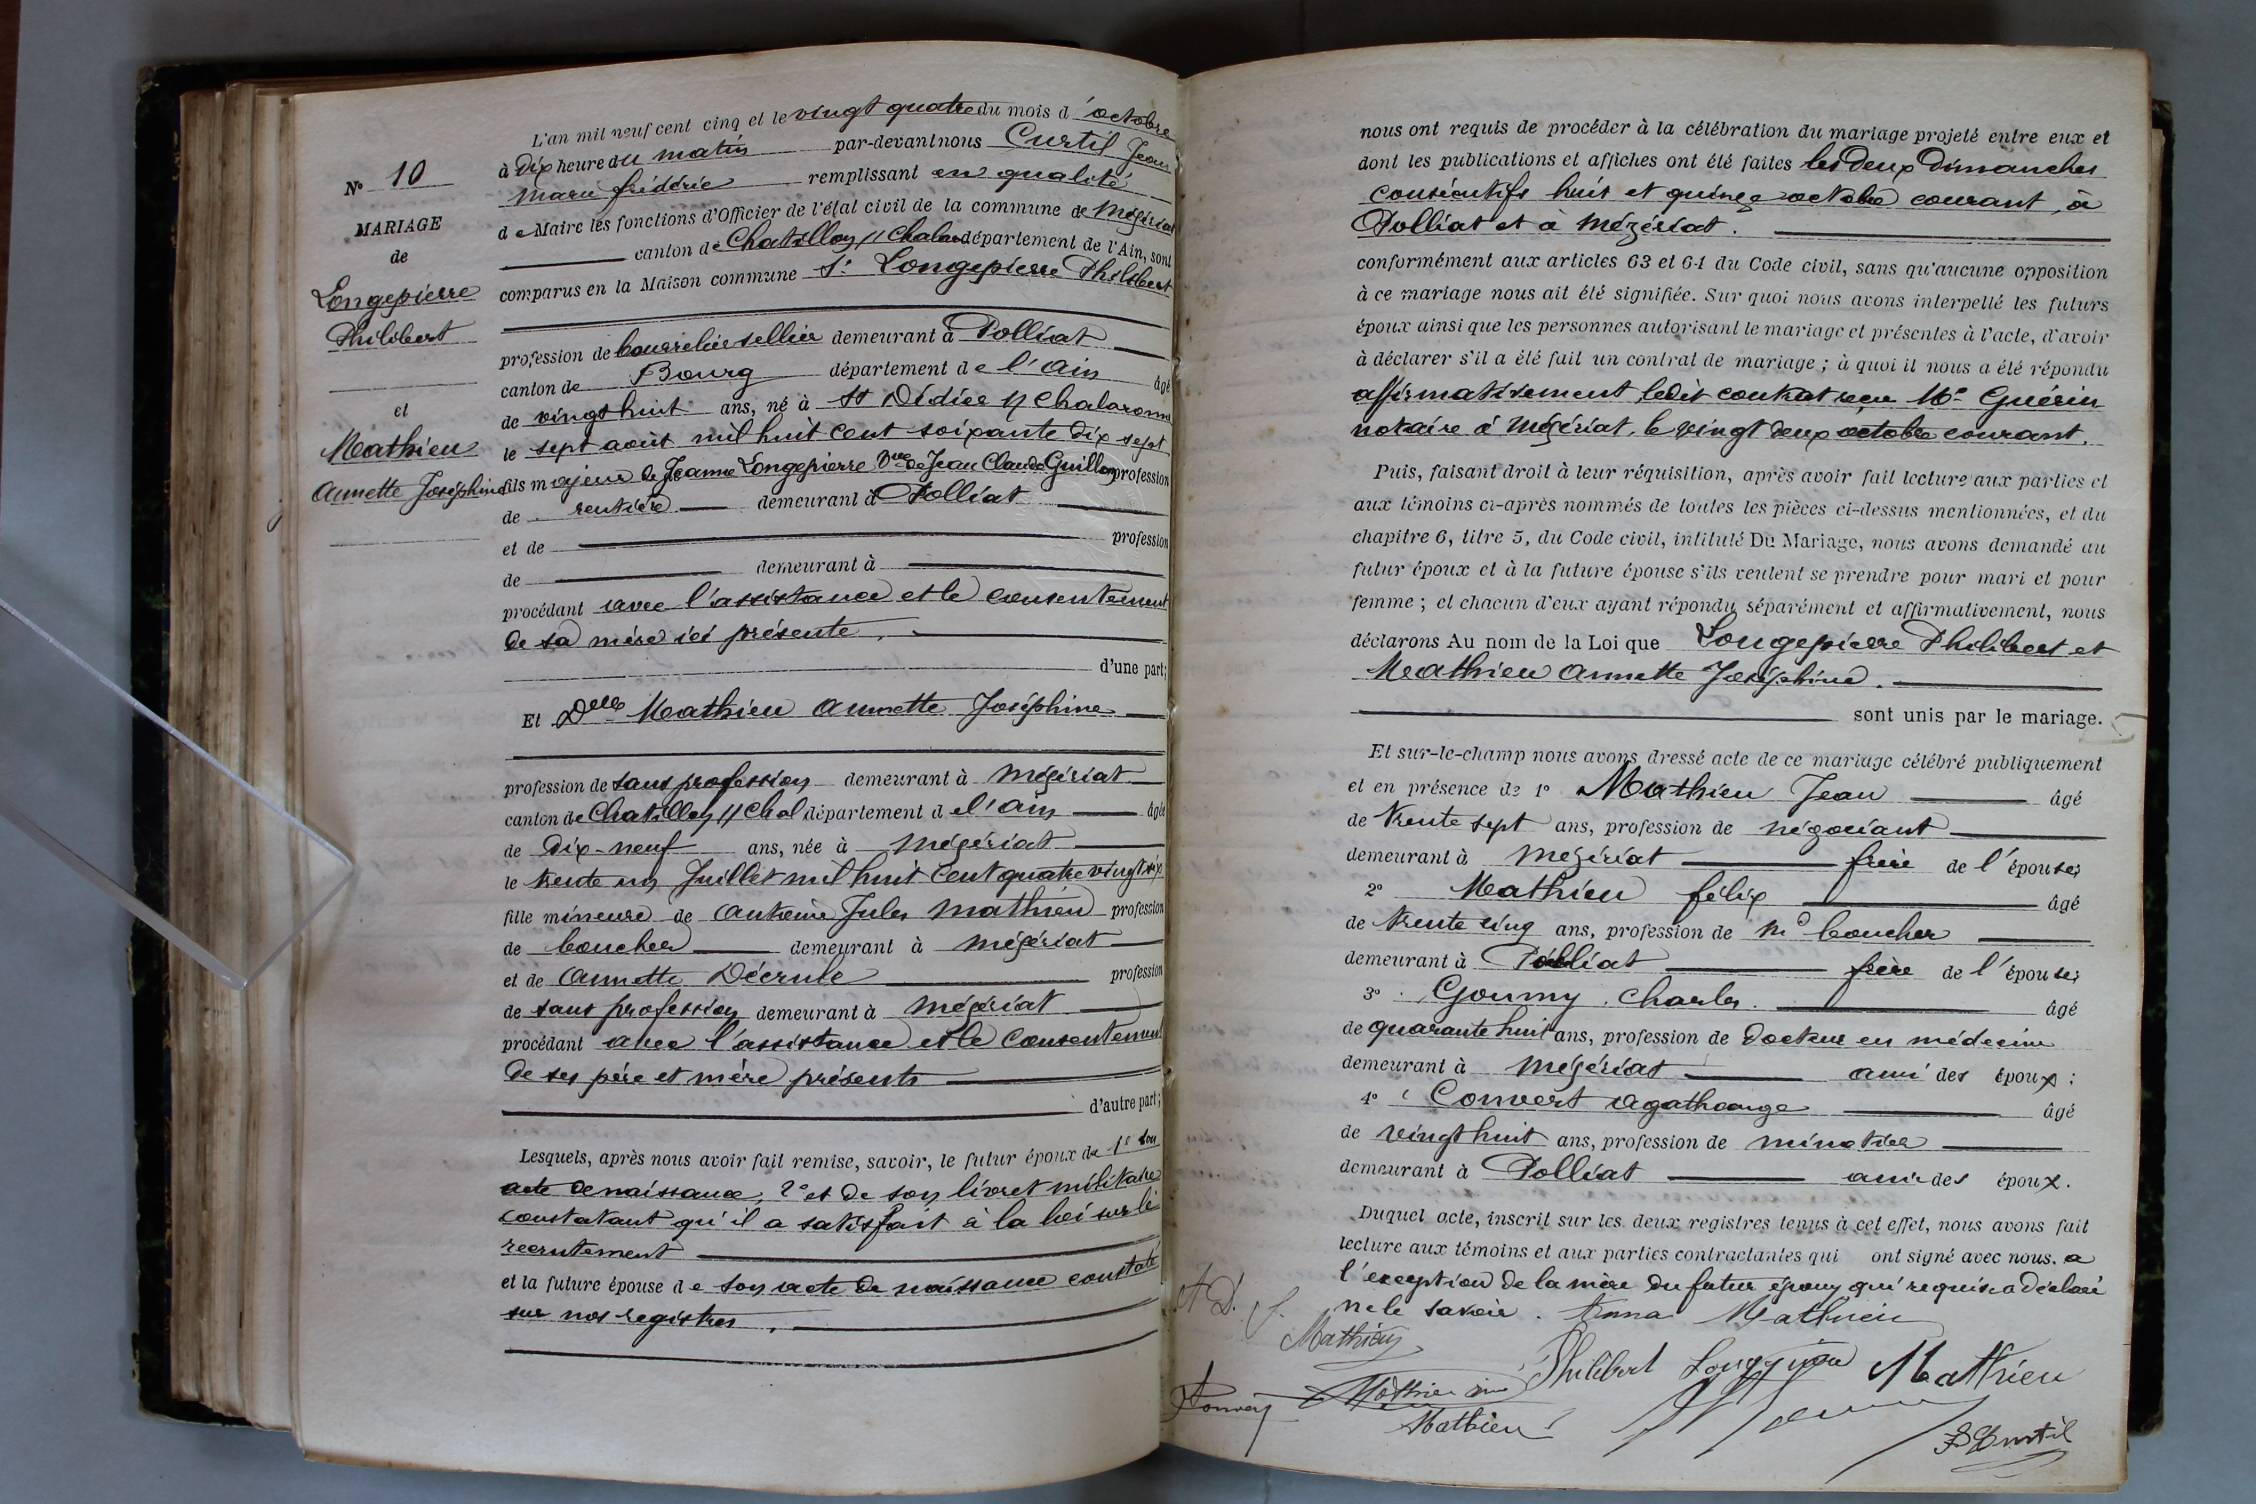 N° 10
MARIAGE
de
Longepierre
Philibert
et
Mathieu
Annette Joséphine
L'an mil neuf cent cinq et le vingt quatre du mois d'octobre
à Dix heure du matin par-devant nous Curtil Jean
Marie frédéric remplissant en qualité
de Maire les fonctions d'Officier de l'état civil de la commune de Mézériat
canton de Chatillon s/ Chalar département de l'Ain, sont
comparus en la Maison commune Sr Longepierre Philibert
profession de bourrelier sellier demeurant à Polliat
canton de Bourg département de l'Ain âgé
de vingt huit ans, né à St Didier s/ Chalaronne
le sept août mil huit cent soixante dix sept
fils majeur de Jeanne Longepierre Vve de Jean Claude Guillon profession
de rentière demeurant à Polliat
et de profession
de demeurant à
procédant avec l'assistance et le consentement
de sa mère ici présente.
d'une part;
Et Delle Mathieu Annette Joséphine
profession de sans profession demeurant à Mézériat
canton de Chatillon s/ Chal département de l'Ain âgée
de Dix-neuf ans, née à Mézériat
le trente un Juillet mil huit cent quatre vingt six
fille mineure de Antoine Jules Mathieu profession
de boucher demeurant à Mézériat
et de Annette Décrule profession
de sans profession demeurant à Mézériat
procédant avec l'assistance et le consentement
de ses père et mère présents
d'autre part;
Lesquels, après nous avoir fait remise, savoir, le futur époux de 1° son
acte de naissance, 2° et de son livret militaire
constatant qu'il a satisfait à la loi sur le
recrutement
et la future épouse de son acte de naissance constaté
sur nos registres.
nous ont requis de procéder à la célébration du mariage projeté entre eux et
dont les publications et affiches ont été faites les deux Dimanches
consécutifs huit et quinze octobre courant, à
Polliat et à Mézériat.
conformément aux articles 63 et 64 du Code civil, sans qu'aucune opposition
à ce mariage nous ait été signifiée. Sur quoi nous avons interpellé les futurs
époux ainsi que les personnes autorisant le mariage et présentes à l'acte, d'avoir
à déclarer s'il a été fait un contrat de mariage; à quoi il nous a été répondu
affirmativement ledit contrat reçu Me Guérin
notaire à Mézériat, le vingt deux octobre courant.
Puis, faisant droit à leur réquisition, après avoir fait lecture aux parties et
aux témoins ci-après nommés de toutes les pièces ci-dessus mentionnées, et du
chapitre 6, titre 5, du Code civil, intitulé Du Mariage, nous avons demandé au
futur époux et à la future épouse s'ils veulent se prendre pour mari et pour
femme; et chacun d'eux ayant répondu séparément et affirmativement, nous
déclarons Au nom de la Loi que Longepierre Philibert et
Mathieu Annette Joséphine.
sont unis par le mariage.
Et sur-le-champ nous avons dressé acte de ce mariage célébré publiquement
et en présence de 1° Mathieu Jean âgé
de trente sept ans, profession de négociant
demeurant à Mézériat frère de l'épouse;
2° Mathieu félix âgé
de trente cinq ans, profession de Md boucher
demeurant à Polliat frère de l'épouse;
3° Goumy Charles. âgé
de quarante huit ans, profession de Docteur en médecine
demeurant à Mézériat ami des époux;
4° Convert Agathange âgé
de vingt huit ans, profession de minotier
demeurant à Polliat ami des époux.
Duquel acte, inscrit sur les deux registres tenus à cet effet, nous avons fait
lecture aux témoins et aux parties contractantes qui ont signé avec nous. a
l'exception de la mère du futur époux qui requise a déclaré
ne le savoir. Anna Mathieu
A D. J. Mathieu
Philibert Longepierre Mathieu
Convert Mathieu
Mathieu
Curtil